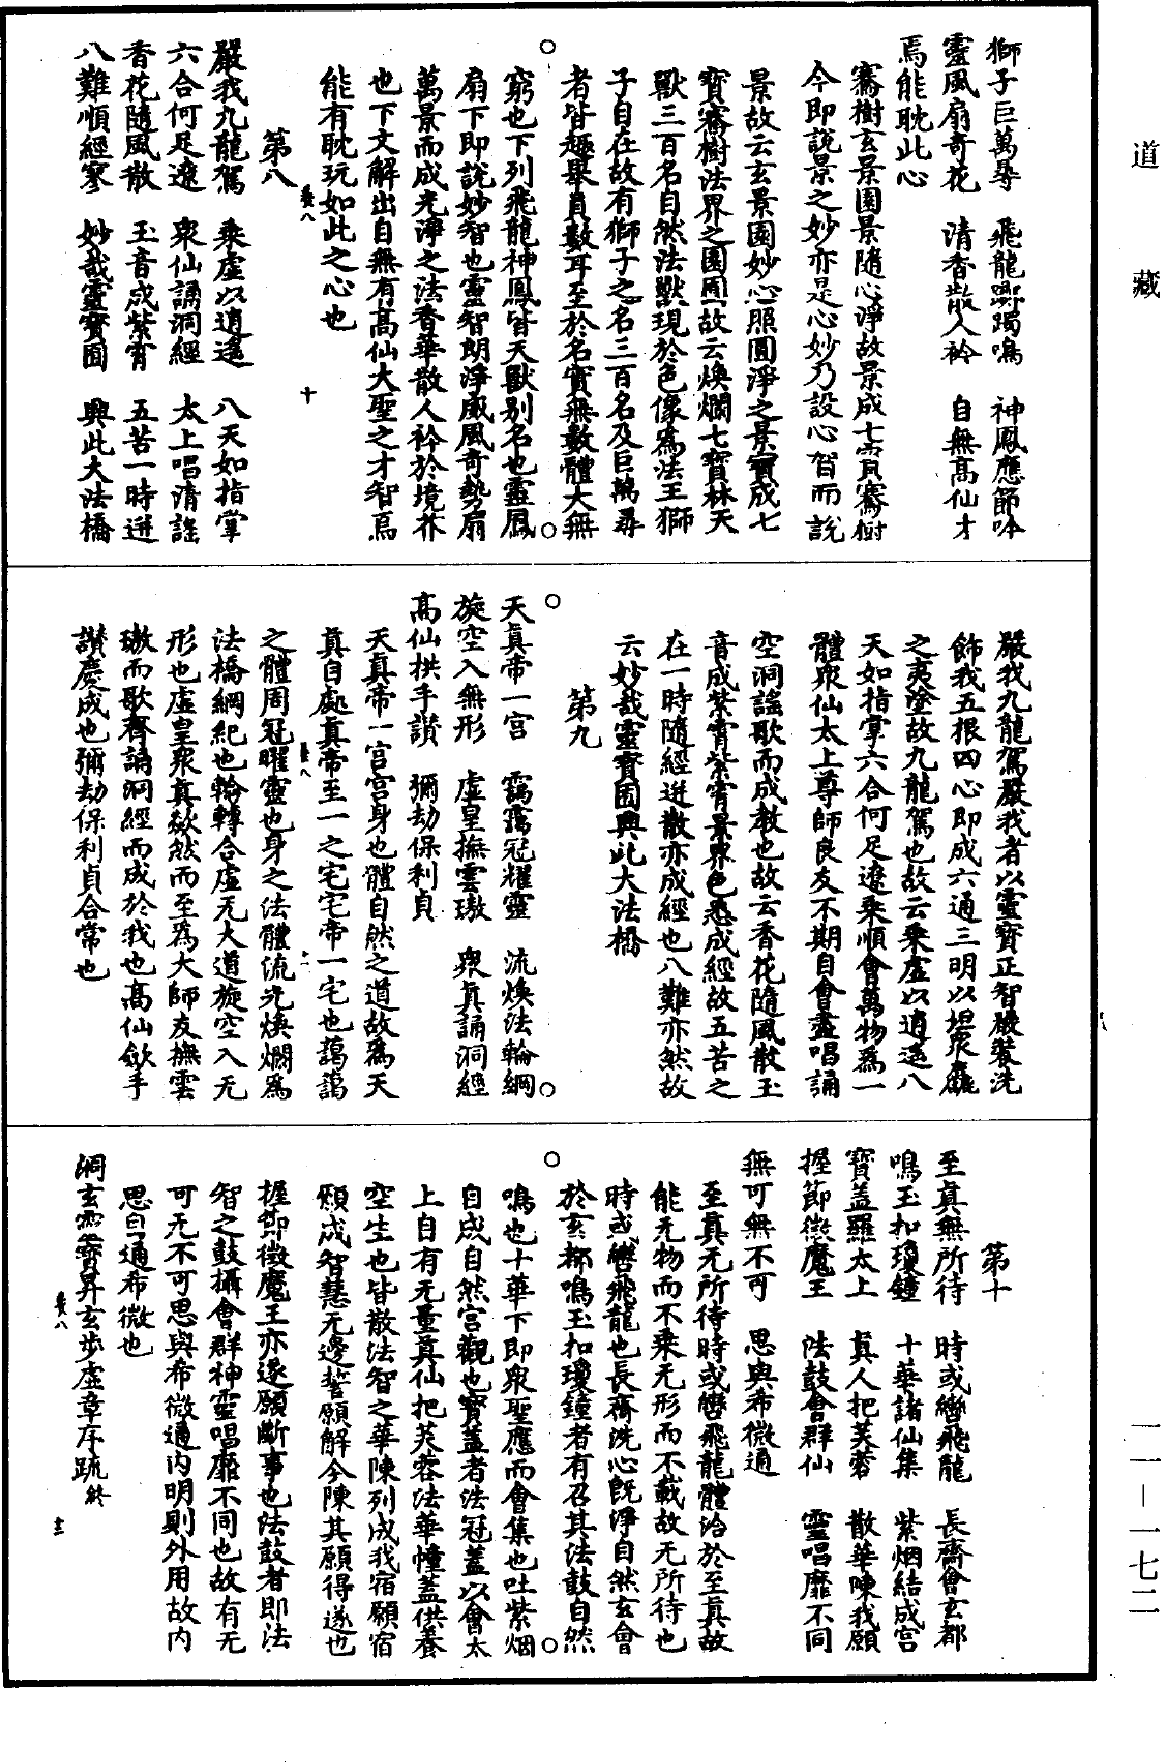 道藏
獅子巨萬尋　飛龍躑躅鳴　神鳳應節吟
靈風扇奇花　清香散人衿　自無高仙才
焉能耽此心
騫樹玄景園景隨心淨故景成七寶騫樹
今即說景之妙亦是心妙乃設心智而說
景故云玄景園妙心照圓淨之景寶成七
寶騫樹法界之園囿故云煥爛七寶林天
獸三百名自然法獸現於色像為法王獅
子自在故有獅子之名三百名及巨萬尋
者皆趣舉員數耳至於名實無數體大無
窮也下列飛龍神鳳皆天獸別名也靈風
扇下即說妙智也靈智朗淨威風奇勢扇
萬景而成光淨之法香華散人衿於境界
也下文解出自無有高仙大聖之才智焉
能有耽玩如此之心也
十
第八
羙八
嚴我九龍駕　乘虛以逍遙　八天如指掌
六合何足遼　眾仙誦洞經　太上唱清謠
香花隨風散　玉音成紫霄　五苦一時迸
八難順經寥　妙哉靈寶囿　興此大法橋
嚴我九龍駕嚴我者以靈寶正智嚴裝洗
飾我五根四心即成六通三明以坦眾麤
之夷墜故九龍駕也故云乘虛以逍遙八
天如指掌六合何足遼乘順會萬物為一
體眾仙太上尊師良友不期自會盡唱誦
空洞謠歌而成教也故云香花隨風散玉
音成紫霄紫霄景界色悉成經故五苦之
在一時隨經迸散亦成經也八難亦然故
云妙哉靈寶囿興此大法橋
第九
天真帝一宮　靄靄冠耀靈　流煥法輪綱
旋空入無形　虛皇撫雲璈　眾真誦洞經
高仙拱手讚　彌劫保利貞
天真帝一宮宮身也體自然之道故為天
真自處真帝至一之宅宅帝一宅也藹藹
之體周冠曜靈也身之法體流光煥爛為
法橋綱紀也輪轉合虛无大道旋空入无
形也虛皇眾真欻然而至為大師友撫雲
璈而歌齊誦洞經而成於我也高仙斂手
讚慶成也彌劫保利貞合常也
第十
至真無所待　時或轡飛龍　長齋會玄都
鳴玉扣瓊鐘　十華諸仙集　紫烟結成宮
寶蓋羅太上　真人把芙蓉　散華陳我願
握節徵魔王　法鼓會群仙　靈唱靡不同
無可無不可　思與希微通
至真无所待時或轡飛龍體洽於至真故
能无物而不乘无形而不載故无所待也
時或轡飛龍也長齋洗心既淨自然玄會
於玄都鳴玉扣瓊鐘者有召其法鼓自然
鳴也十華下即眾聖應而會集也吐紫烟
自成自然宮觀也寶蓋者法冠蓋以會太
上自有无量真仙把芙蓉法華幢蓋供養
空生也皆散法智之華陳列成我宿願宿
願成智慧无邊誓願解今陳其願得遂也
握節徵魔王亦遂願斷事也法鼓者即法
智之鼓攝會群神靈唱靡不同也故有无
可无不可思與希微通內明則外用故內
思自通希微也
洞玄靈寶昇玄步虛章序疏終
羙八
十二
一一—一七二